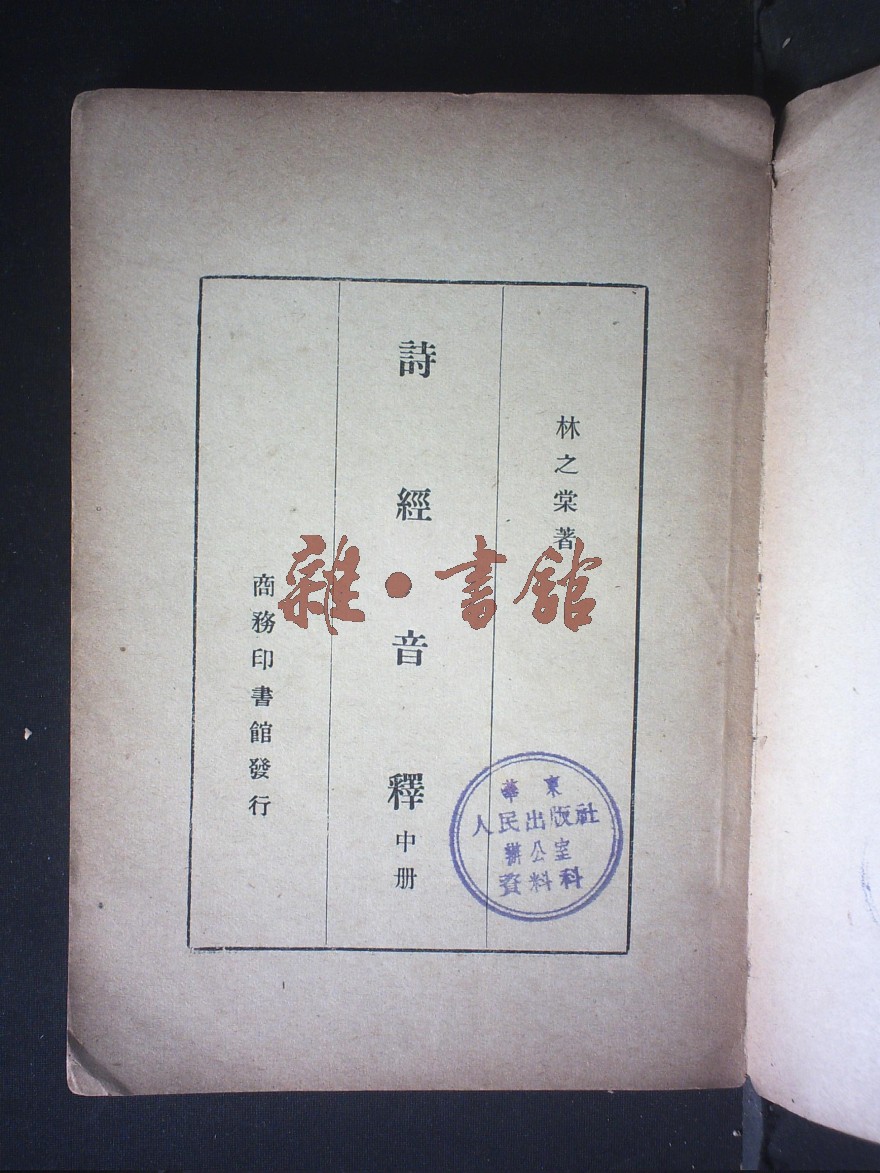 林之棠著
詩經音釋中册
商務印書館發行
雜·書館
華東
人民出版社
辦公室
資料科